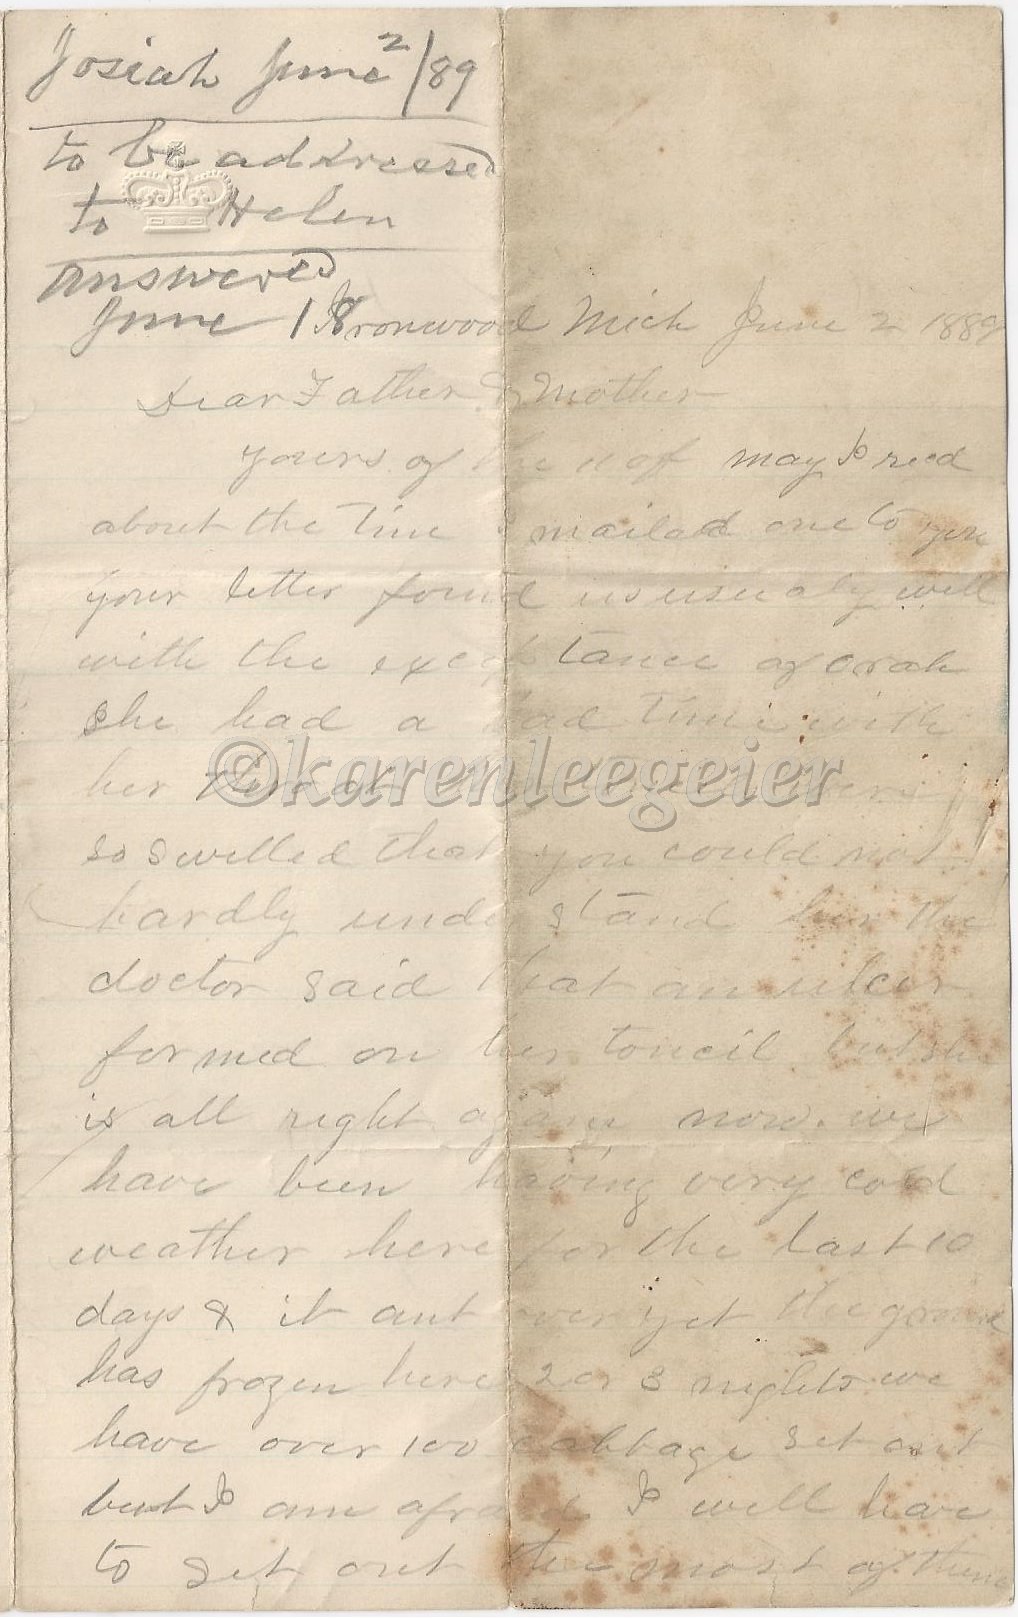 Josiah June 2/89
to be addressed
to Helen
answered
June 18
Ironwood Mich June 2 1889
Dear Father & Mother
yours of the 11 of may I recd
about the Time I mailed one to you
your letter found us usualy well
with the exceptance of orah
she had a bad Time with
her throat
so swelled that you could not
hardly under stand her the
doctor said that an ulcer
formed on her toncil but she
is all right again now. we
have been having very cold
weather here for the last 10
days & it ant over yet the ground
has frozen here 2 or 3 nights we
have over 100 cabbage set out
but I am afraid I will have
to set out the most of them
©karenleegeier